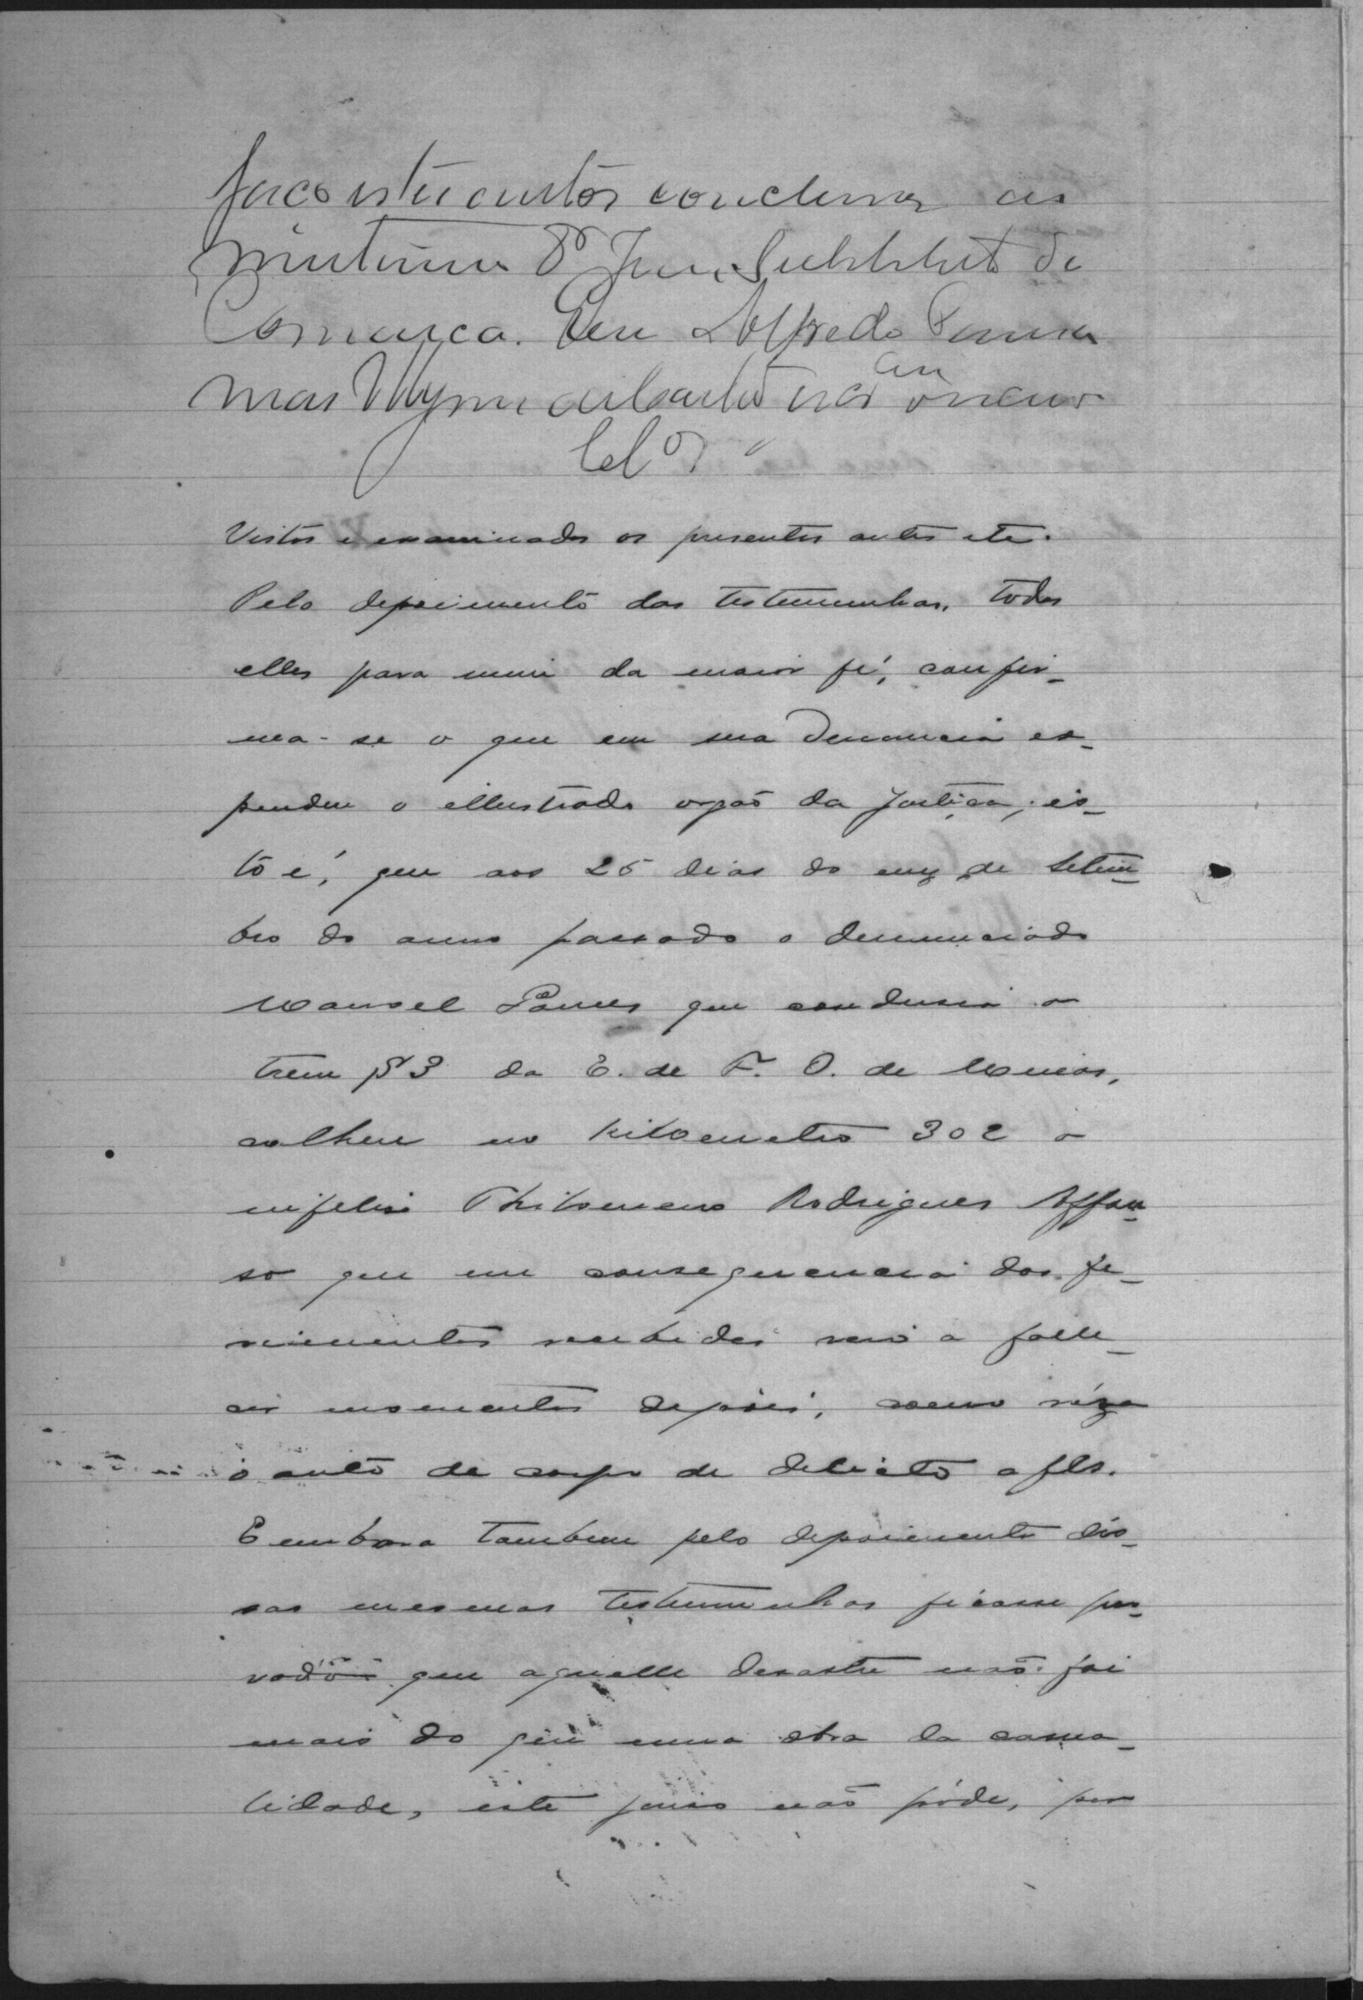 Faço estes autos conclusos ao
Dr Juiz Substituto de
Comarca. Eu Alfredo
mas escrivão
Cls
Vistos e examinados os presentes autos etc.
Pelo depoimento das testemunhas, todas
ellas para mim da maior fé, confir-
ma-se o que em sua denuncia ex-
pendeu o illustrado orgaõ da Justiça, is-
to é, que aos 25 dias do mez de Setem-
bro do anno passado o denunciado
Manoel que condusia o
trem P3 da E. de F. O. de Minas,
colheu no kilometro 302 o
infeliz Philomeno Rodrigues Affon-
so que em consequencia dos fe-
rimentos recebidos veio a falle-
cer momentos depois, como résa
o auto de corpo de delicto a fls.
E embora tambem pelo depoimento des-
sas mesmas testemunhas ficasse pro-
vado que aquelle desastre não foi
mais do que uma obra da casua-
lidade, este juiso naõ póde, por